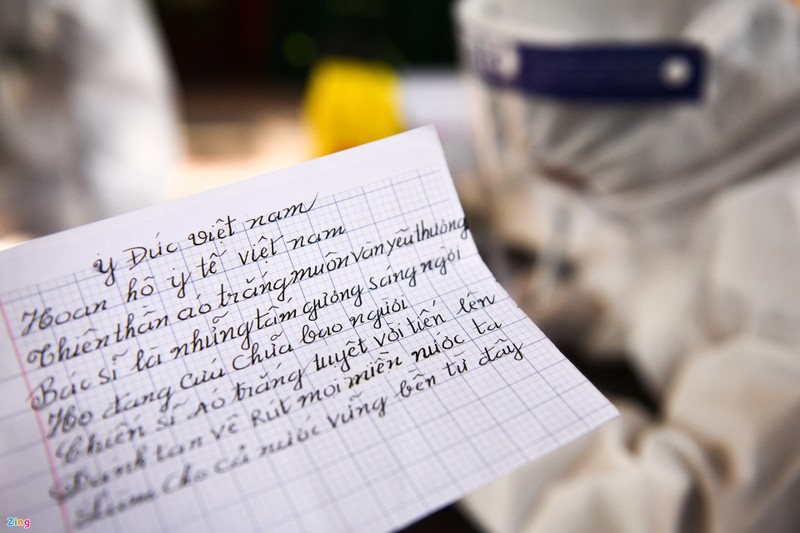 Y Đức việt nam
Hoan hô y tế việt nam
Thiên thần áo trắng muôn vàn yêu thương
Bác sĩ là những tấm gương sáng ngời
Họ đang cứu chữa bao người
Chiến sĩ áo trắng tuyệt vời tiến lên
Đánh tan vê Rút mọi miền nước ta
Làm cho cả nước vững bền từ đây
Zing